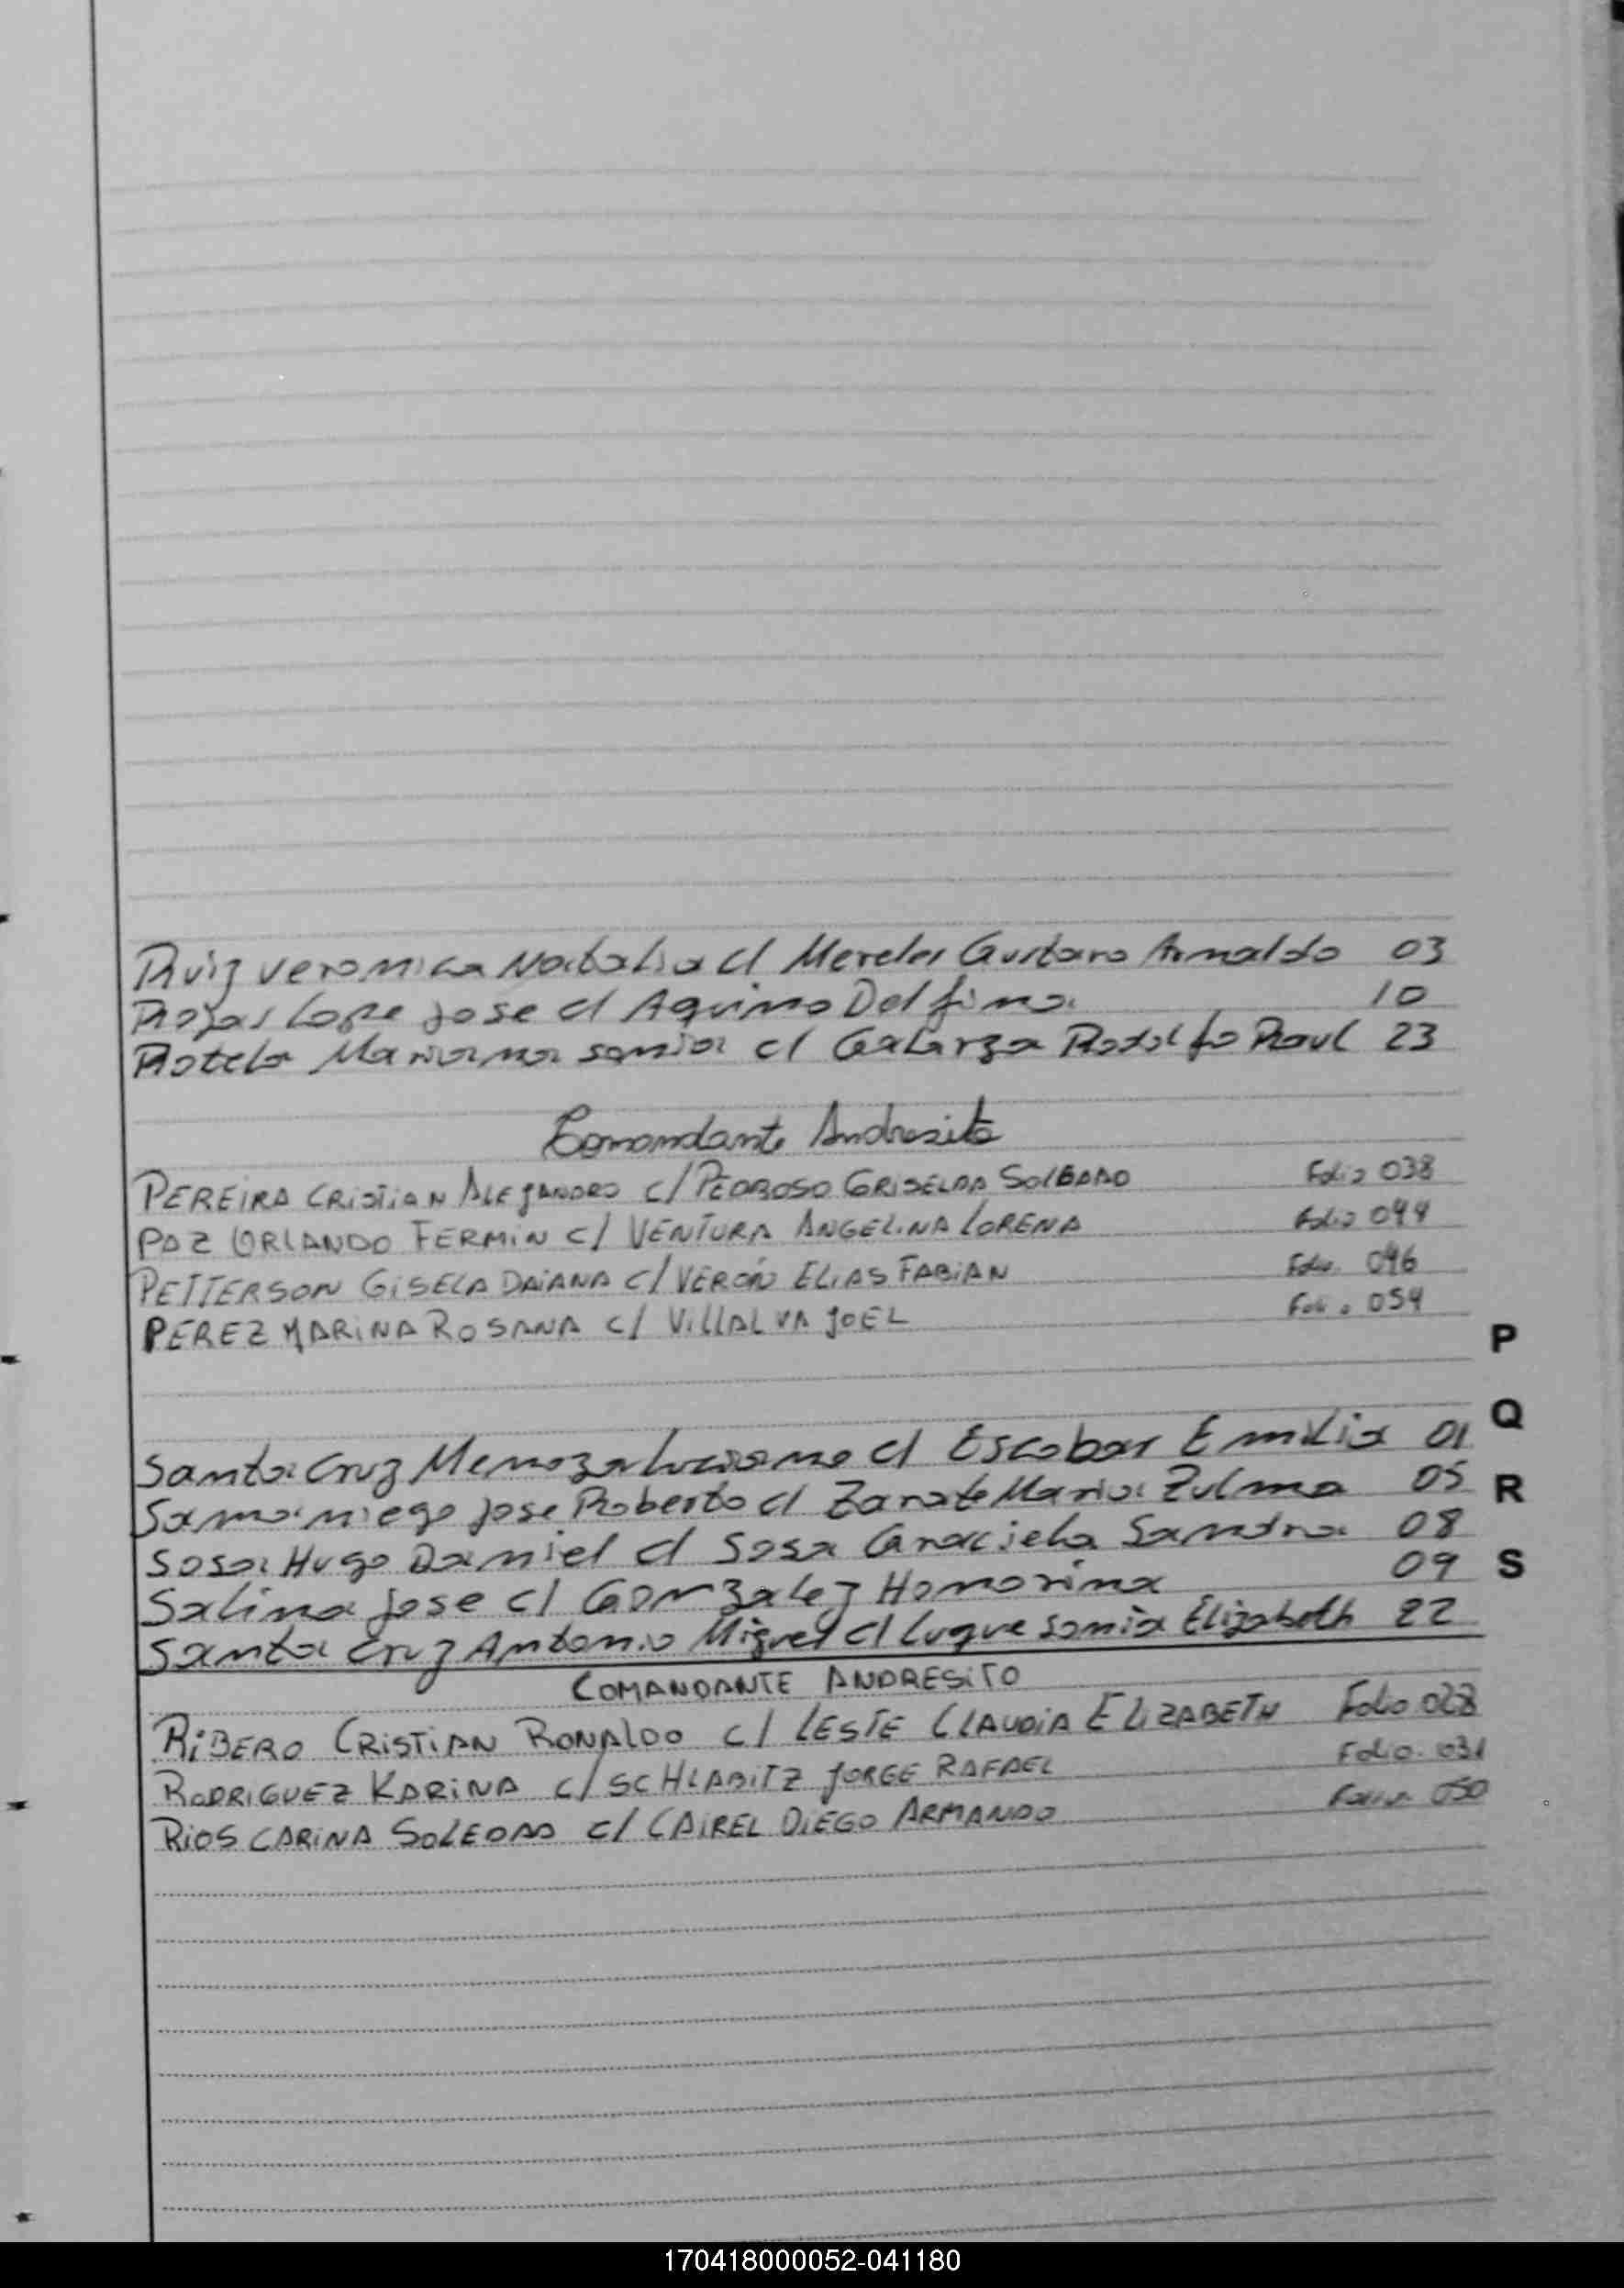 Ruiz Veronica Natalia c/ Mereles Gustavo Arnaldo 03
Rojas Lope Jose c/ Aquino Delfina 10
Rotela Mariana Sonia c/ Galarza Rodolfo Raul 23
Comandante Andresito
PEREIRA CRISTIAN ALEJANDRO c/ PEDROSO GRISELDA Folio 038
PAZ ORLANDO FERMIN c/ VENTURA ANGELINA LORENA Folio 044
PETTERSON GISELA DAIANA c/ VERÓN ELIAS FABIAN Folio 046
PEREZ MARINA ROSANA c/ VILLALVA JOEL Folio 054
P
Q
Santa Cruz Luciano c/ Escobar Emilia 01
Samaniego Jose Roberto c/ Zarate Maria Zulma 05
R
Sosa Hugo Daniel c/ Sosa Graciela Sandra 08
Salina Jose c/ Gonzalez Homorina 09
S
Santa Cruz Antonio Miguel c/ Luque Sonia Elizabeth 22
COMANDANTE ANDRESITO
RIBERO CRISTIAN RONALDO c/ LESTE CLAUDIA ELIZABETH Folio 028
RODRIGUEZ KARINA c/ SCHLABITZ JORGE RAFAEL Folio 031
RIOS CARINA SOLEDAD c/ CAIREL DIEGO ARMANDO Folio 050
170418000052-041180